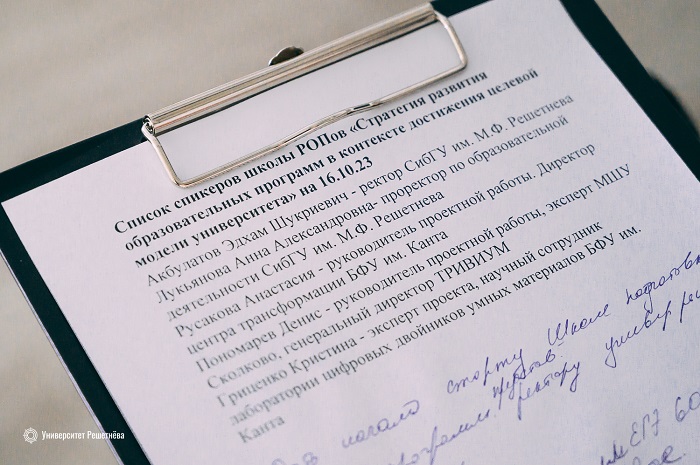 Список спикеров школы РОПов «Стратегия развития
образовательных программ в контексте достижения целевой
модели университета» на 16.10.23
Акбулатов Эдхам Шукриевич - ректор СибГУ им. М.Ф. Решетнева
Лукьянова Анна Александровна- проректор по образовательной
деятельности СибГУ им. М.Ф. Решетнева
Русакова Анастасия - руководитель проектной работы. Директор
центра трансформации БФУ им. Канта
Пономарев Денис - руководитель проектной работы, эксперт МШУ
Сколково, генеральный директор ТРИВИУМ
Гриценко Кристина - эксперт проекта, научный сотрудник
лаборатории цифровых двойников умных материалов БФУ им.
Канта
начало старту Школе
ректору
60
Университет Решетнёва